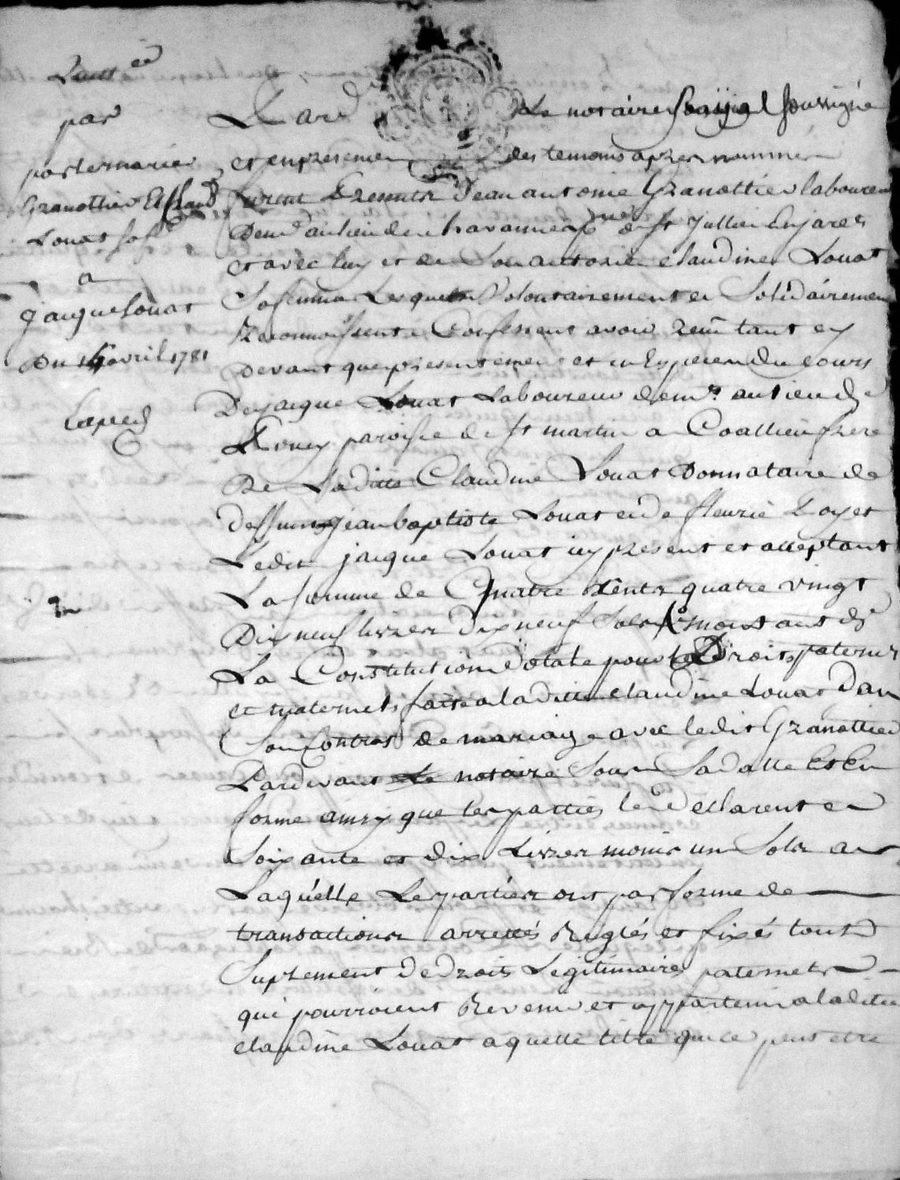 Quitt.ce
par
par le marié
Granottier Et Claud
Louat sa f
a
jaique Louat
Du 14 avril 1781
Exped
Pard le notaire Royal soussigné
et en presence des temoins apres nommes
furent presents jean antoine Granottier laboureur
Dem.t au lieu de chavanne p.sse de st jullien En jares
et avec luy et de Son autorité claudine Louat
Sa femme Lesquels Volontairement et Solidairement
Reconnoissent et Confessent avoir Reçu tant cy
devant que presentement et icy en du cours
De jaique Louat Laboureur dem.t au lieu de
paroisse de st martin a Coallieu frere
De Laditte Claudine Louat Donnataire de
deffunts jean baptiste Louat et de fleurie
Ledit jaique Louat icy present et acceptant
La somme de Quatre Cents quatre vingt
Dix neuf livres dix neuf sols montant de
La Constitution dotale pour Droits paternels
et maternels faite a laditte claudine Louat dans
Son Contrat de mariage avec ledit Granottier
Pardevant Le notaire Sous Sa datte Et En
forme ainsy que les parties le declarent et
Soixante et dix Livres moins un Sols a
Laquelle Les parties ont par forme de
transactions arrettés Reglés et fixés tout
Suplement de droits Legitimaires paternels
qui pourroient Revenir et appartenir a laditte
claudine Louat a quelle titre que ce peut etre